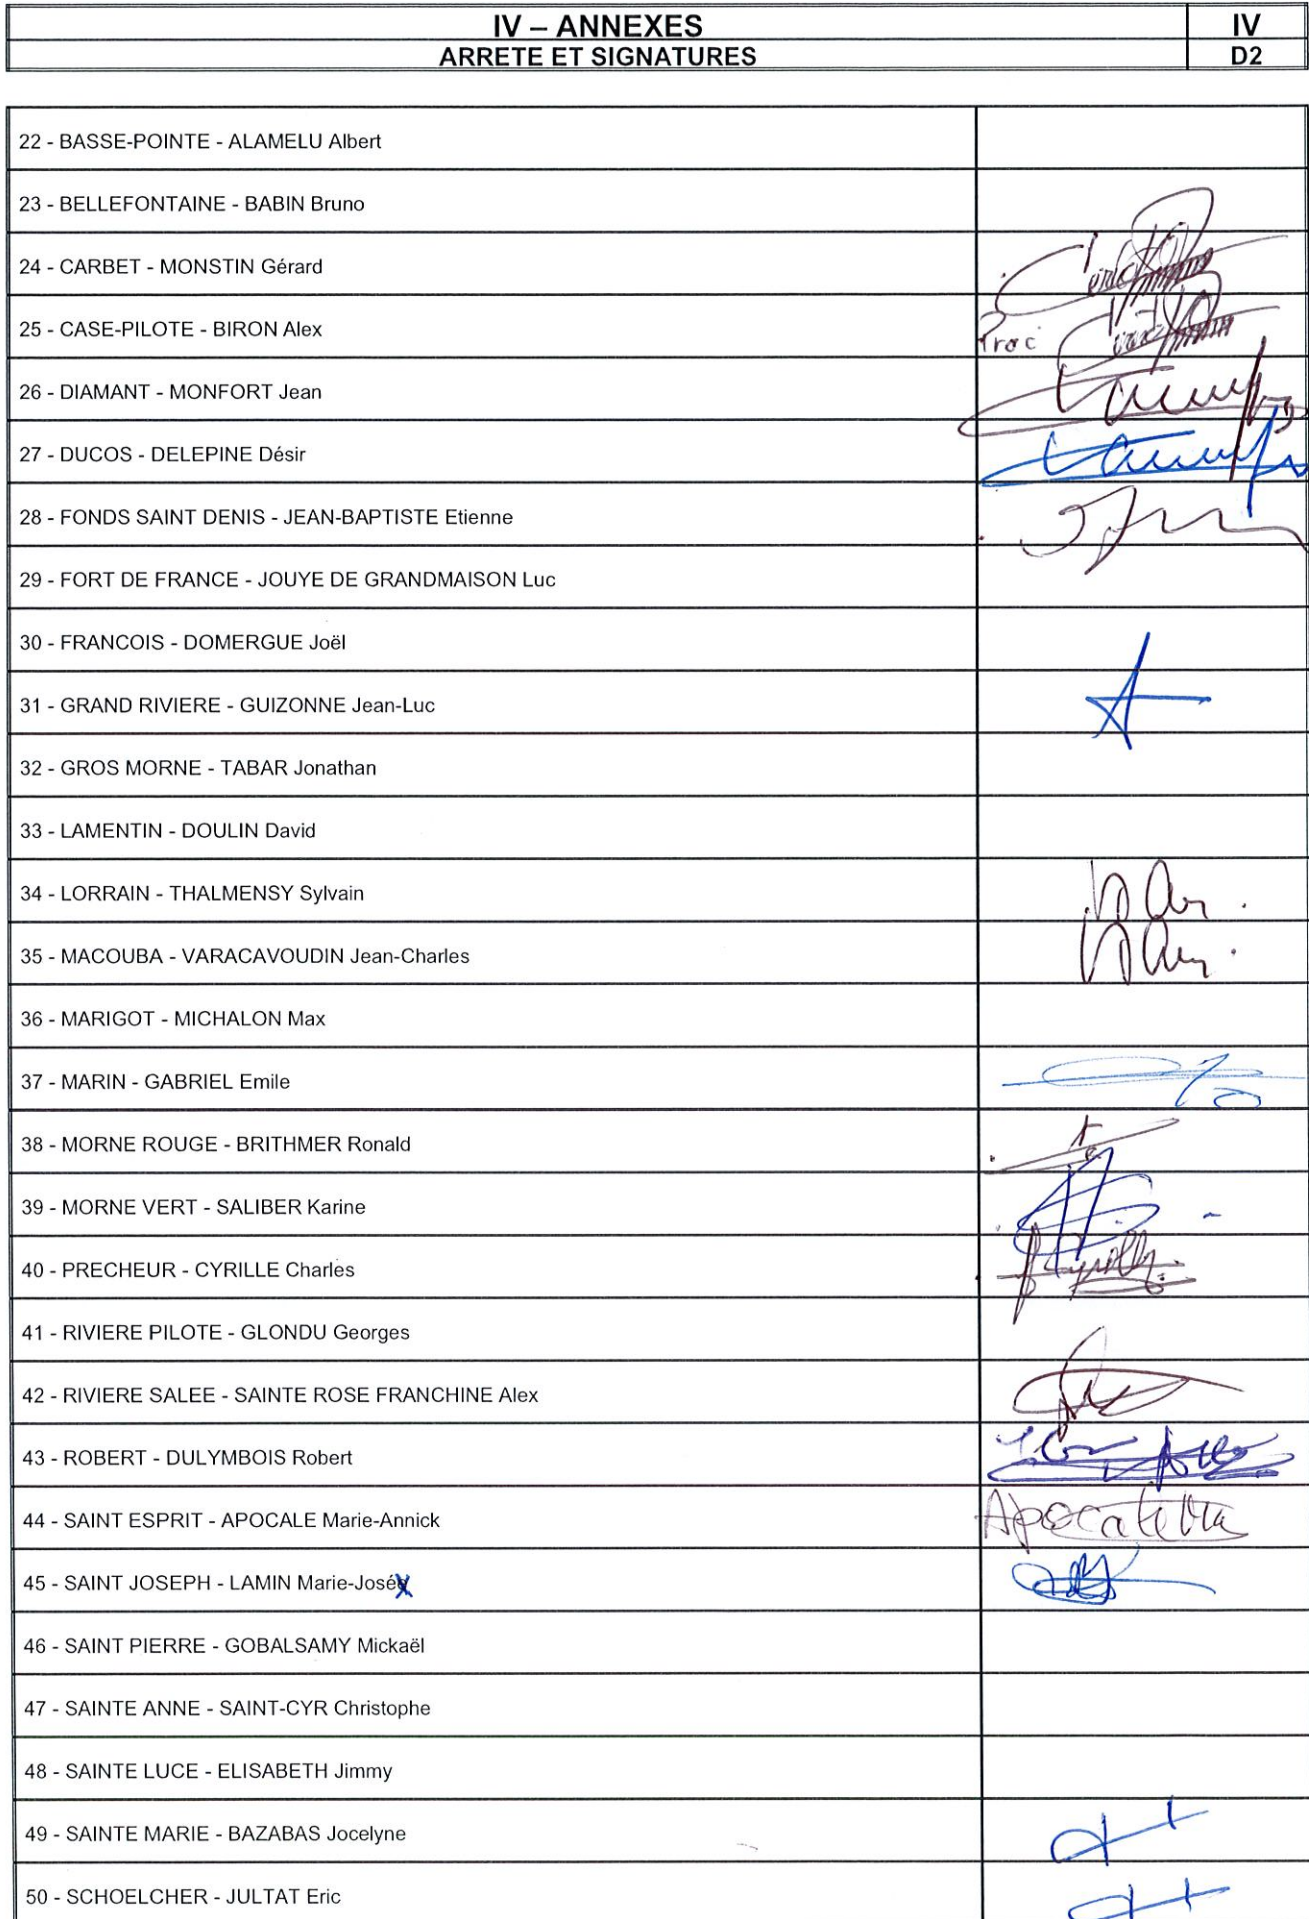 IV – ANNEXES
IV
ARRETE ET SIGNATURES
D2
22 - BASSE-POINTE - ALAMELU Albert
23 - BELLEFONTAINE - BABIN Bruno
24 - CARBET - MONSTIN Gérard
25 - CASE-PILOTE - BIRON Alex
Proc
26 - DIAMANT - MONFORT Jean
27 - DUCOS - DELEPINE Désir
28 - FONDS SAINT DENIS - JEAN-BAPTISTE Etienne
29 - FORT DE FRANCE - JOUYE DE GRANDMAISON Luc
30 - FRANCOIS - DOMERGUE Joël
31 - GRAND RIVIERE - GUIZONNE Jean-Luc
32 - GROS MORNE - TABAR Jonathan
33 - LAMENTIN - DOULIN David
34 - LORRAIN - THALMENSY Sylvain
35 - MACOUBA - VARACAVOUDIN Jean-Charles
36 - MARIGOT - MICHALON Max
37 - MARIN - GABRIEL Emile
38 - MORNE ROUGE - BRITHMER Ronald
39 - MORNE VERT - SALIBER Karine
40 - PRECHEUR - CYRILLE Charles
41 - RIVIERE PILOTE - GLONDU Georges
42 - RIVIERE SALEE - SAINTE ROSE FRANCHINE Alex
43 - ROBERT - DULYMBOIS Robert
44 - SAINT ESPRIT - APOCALE Marie-Annick
45 - SAINT JOSEPH - LAMIN Marie-José
46 - SAINT PIERRE - GOBALSAMY Mickaël
47 - SAINTE ANNE - SAINT-CYR Christophe
48 - SAINTE LUCE - ELISABETH Jimmy
49 - SAINTE MARIE - BAZABAS Jocelyne
50 - SCHOELCHER - JULTAT Eric